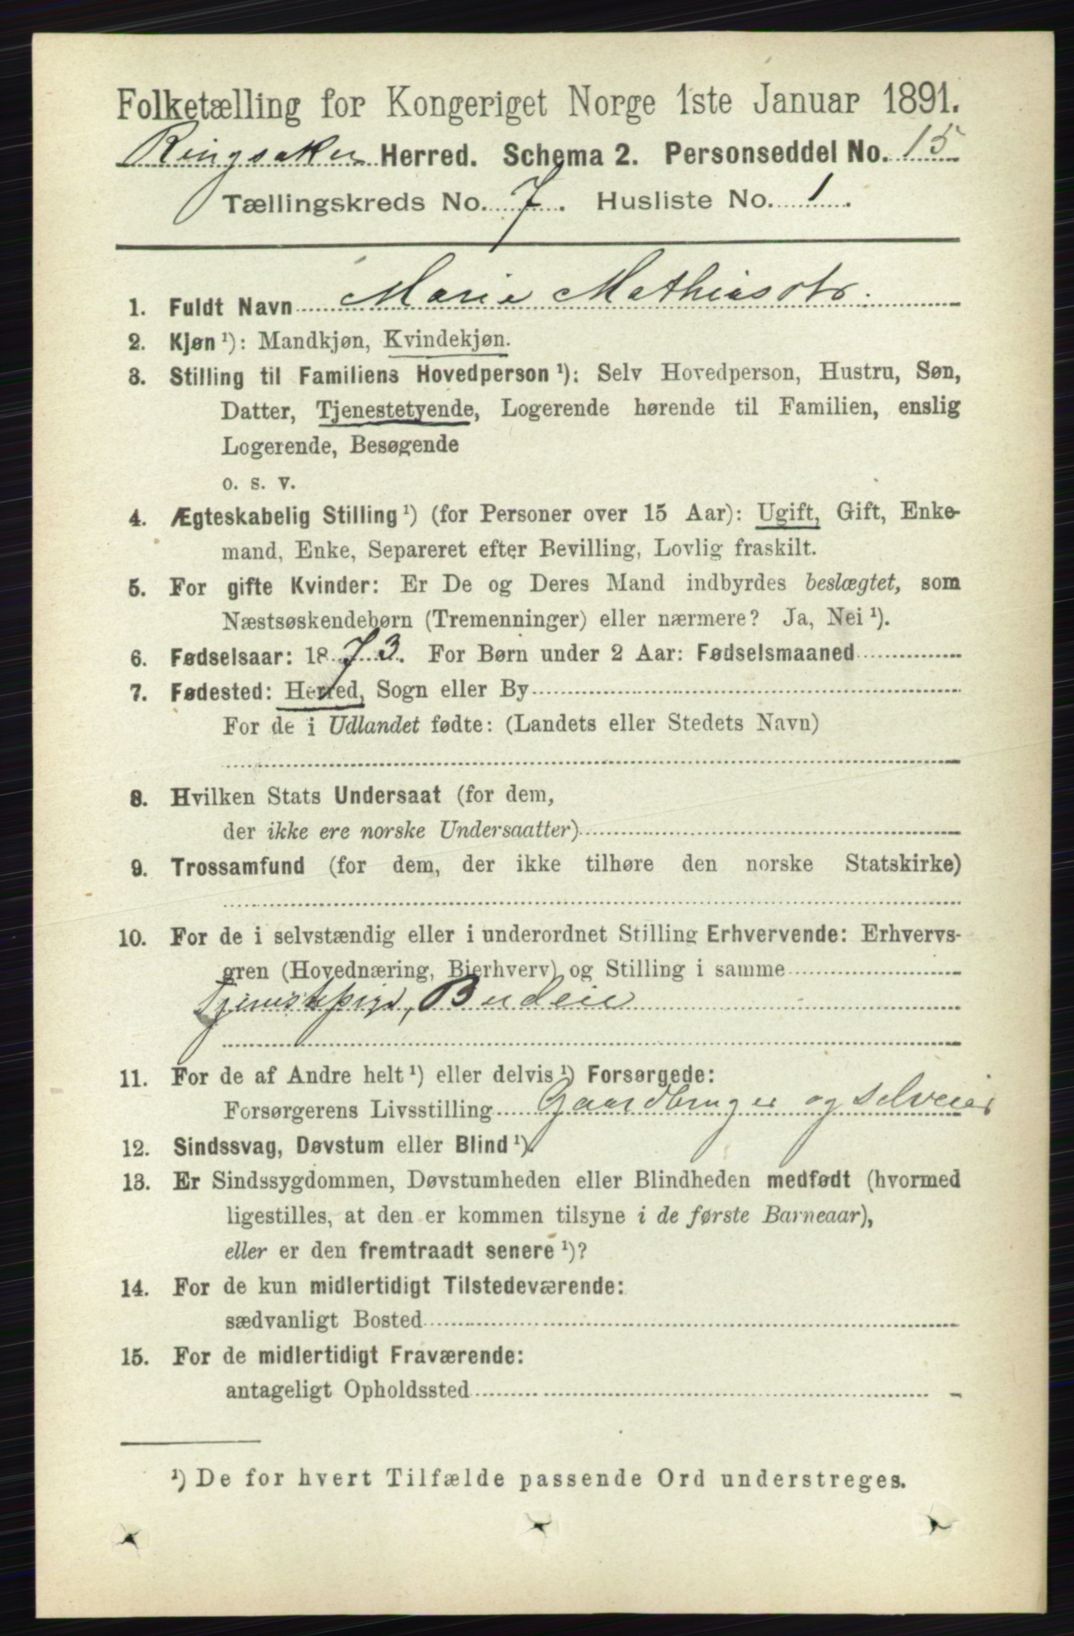 Folketælling for Kongeriget Norge 1ste Januar 1891.
Ringsaker Herred. Schema 2. Personseddel No. 15
Tællingskreds No. 7. Husliste No. 1.
1. Fuldt Navn Marie Mathiasdtr.
2. Kjøn ¹): Mandkjøn, Kvindekjøn.
3. Stilling til Familiens Hovedperson ¹): Selv Hovedperson, Hustru, Søn,
Datter, Tjenestetyende, Logerende hørende til Familien, enslig
Logerende, Besøgende
o. s. v.
4. Ægteskabelig Stilling ¹) (for Personer over 15 Aar): Ugift, Gift, Enke-
mand, Enke, Separeret efter Bevilling, Lovlig fraskilt.
5. For gifte Kvinder: Er De og Deres Mand indbyrdes beslægtet, som
Næstsøskendebørn (Tremenninger) eller nærmere? Ja, Nei ¹).
6. Fødselsaar: 1873. For Børn under 2 Aar: Fødselsmaaned
7. Fødested: Herred, Sogn eller By
For de i Udlandet fødte: (Landets eller Stedets Navn)
8. Hvilken Stats Undersaat (for dem,
der ikke ere norske Undersaatter)
9. Trossamfund (for dem, der ikke tilhøre den norske Statskirke)
10. For de i selvstændig eller i underordnet Stilling Erhvervende: Erhvervs-
gren (Hovednæring, Bierhverv) og Stilling i samme
Tjenstepige, Budeie
11. For de af Andre helt ¹) eller delvis ¹) Forsørgede:
Forsørgerens Livsstilling Gaardbruger og Selveier
12. Sindssvag, Døvstum eller Blind ¹).
13. Er Sindssygdommen, Døvstumheden eller Blindheden medfødt (hvormed
ligestilles, at den er kommen tilsyne i de første Barneaar),
eller er den fremtraadt senere ¹)?
14. For de kun midlertidigt Tilstedeværende:
sædvanligt Bosted
15. For de midlertidigt Fraværende:
antageligt Opholdssted
¹) De for hvert Tilfælde passende Ord understreges.